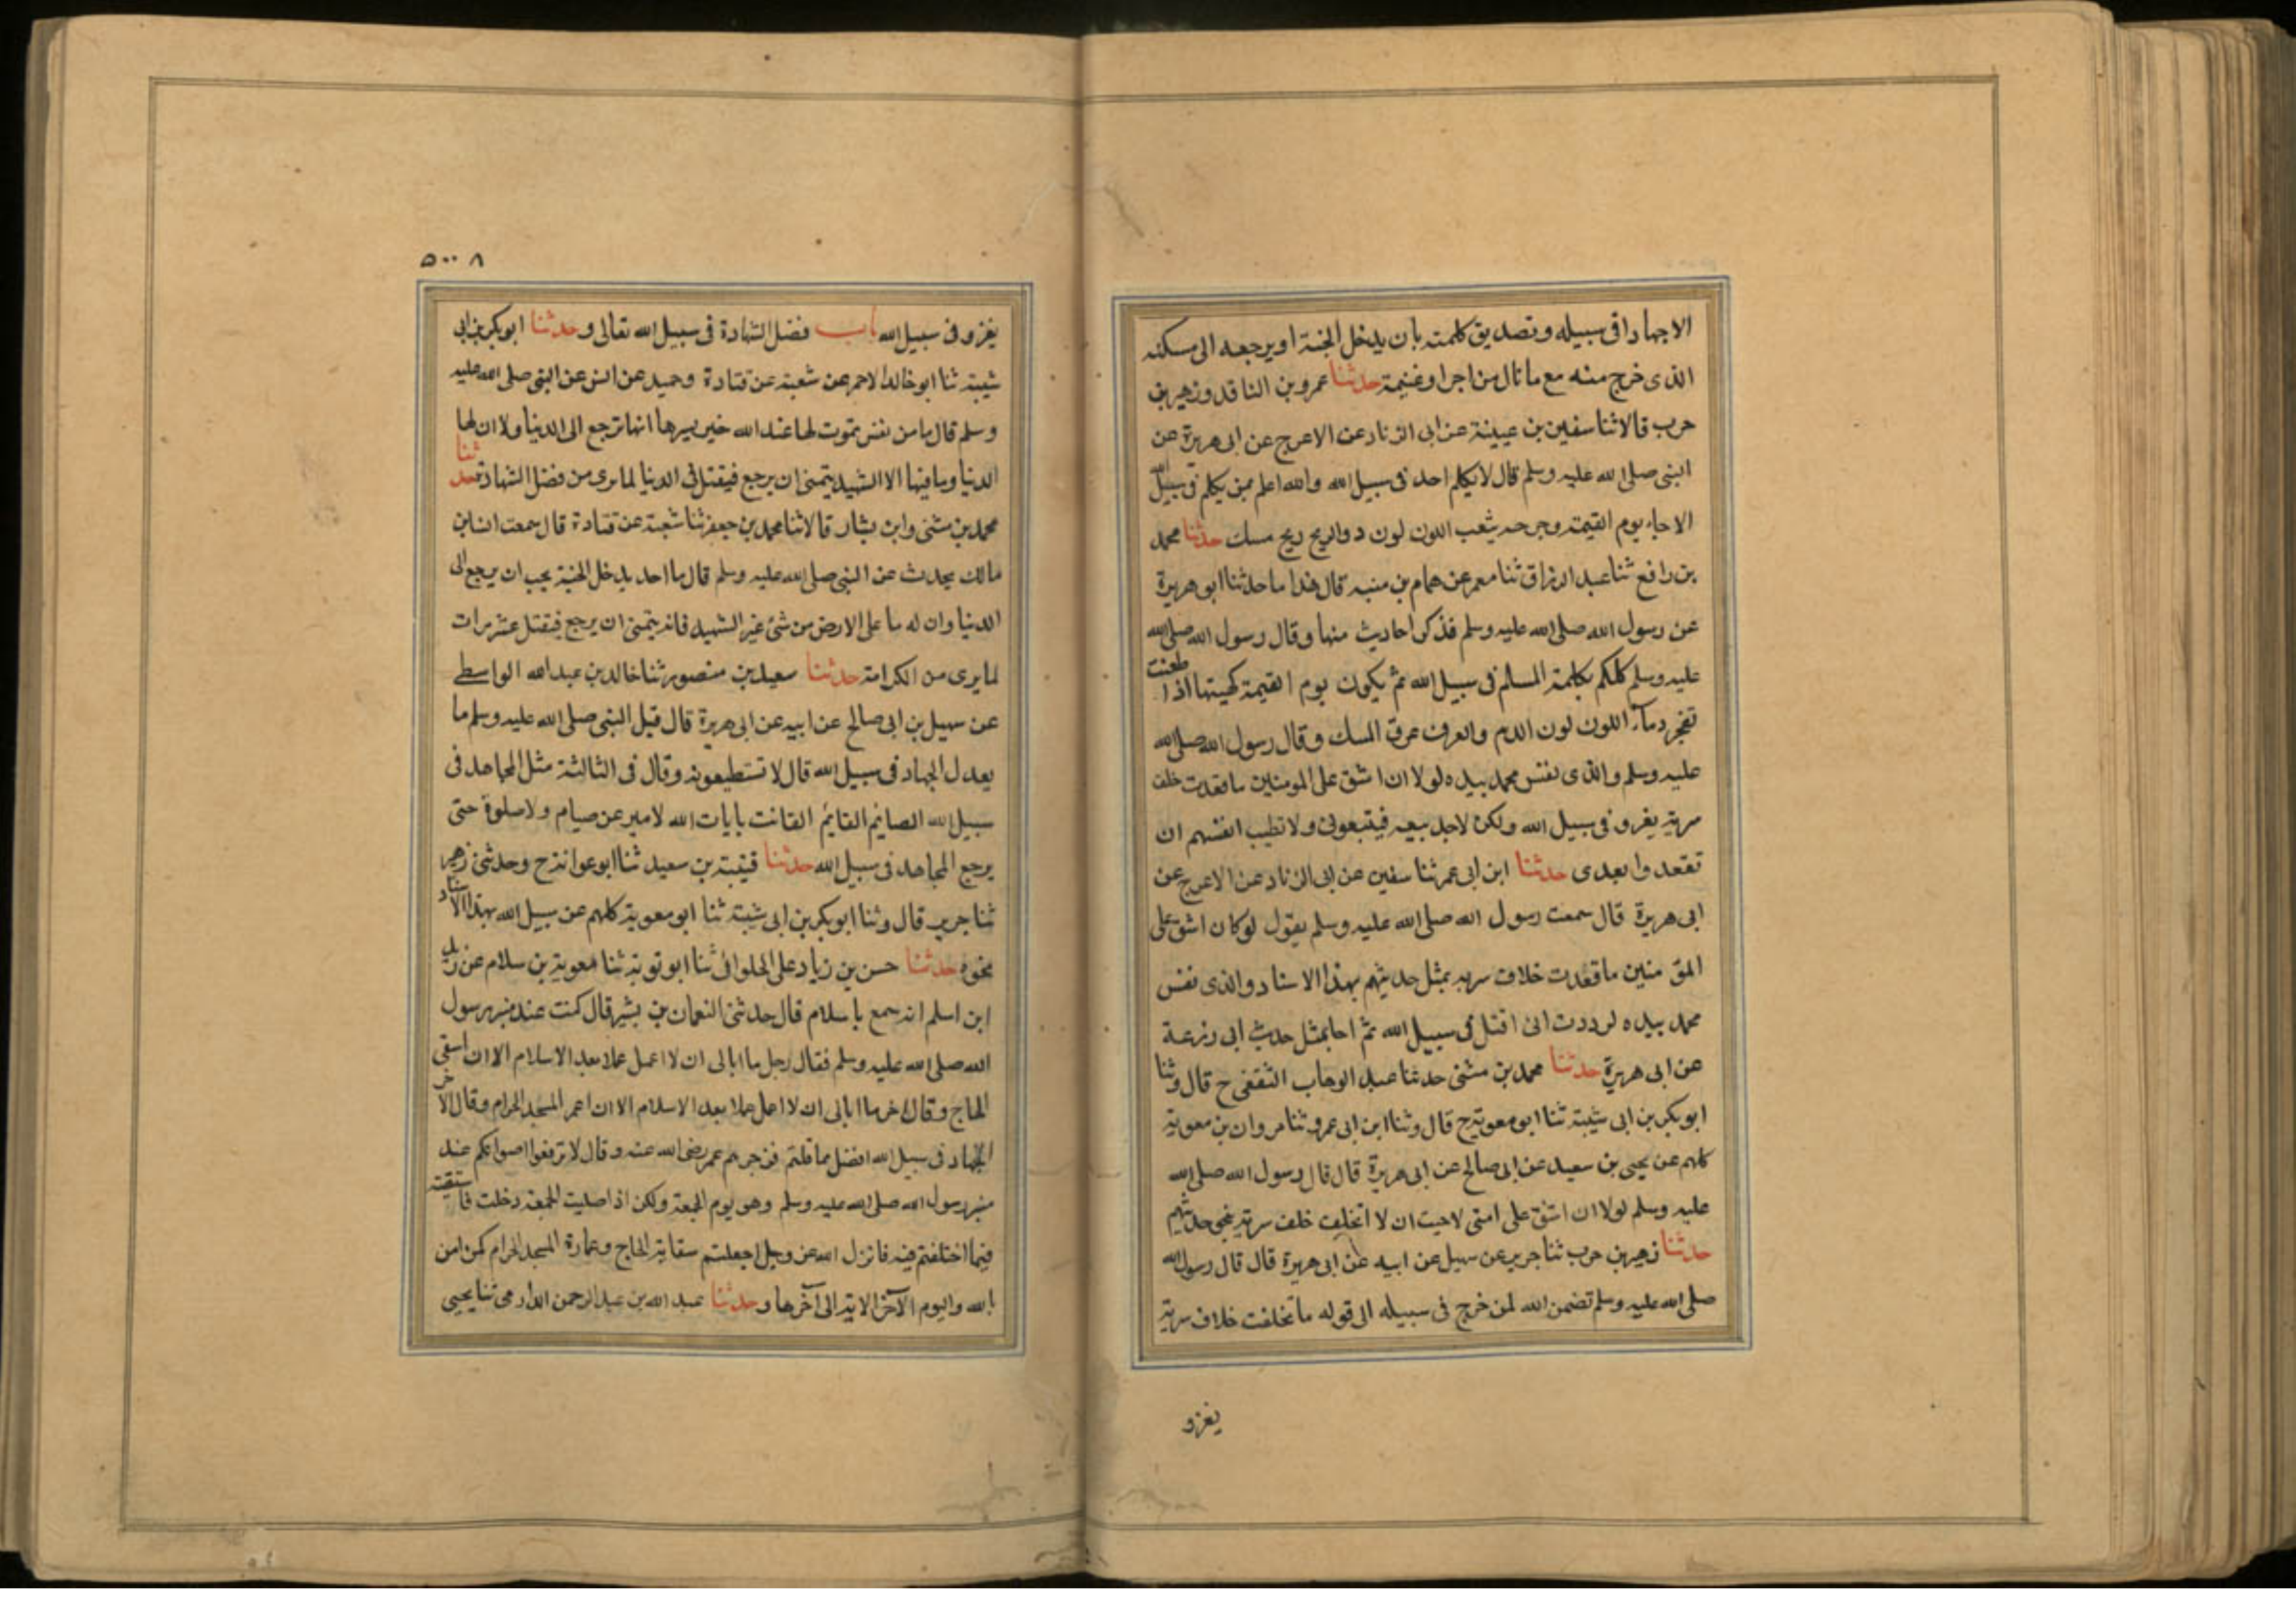 الاجهادا فى سبيله وتصديق كلمته بان يدخل الجنة او يرجعه الى مسكنه
الذى خرج منه مع ما نال من اجرا وغنيمة حدثنا عمرو بن الناقد وزهير بن
حرب قالا ثنا سفين بن عيينة عن ابى الزناد عن الاعرج عن ابى هريرة عن
النبى صلى الله عليه وسلم قال لا يكلم احد فى سبيل الله والله اعلم بمن يكلم فى سبيل الله
الا جاء يوم القيمة وجرحه يثعب اللون لون دم والريح ريح مسك حدثنا محمد
بن رافع ثنا عبد الرزاق ثنا معمر عن همام بن منبه قال هذا ما حدثنا ابو هريرة
عن رسول الله صلى الله عليه وسلم فذكر احاديث منها وقال رسول الله صلى الله
عليه وسلم كلكم يكلمه المسلم فى سبيل الله ثم يكون يوم القيمة كهيئتها اذا طعنت
تفجر دماً اللون لون الدم والعرف عرف المسك وقال رسول الله صلى الله
عليه وسلم والذى نفس محمد بيده لولا ان اشق على المومنين ما قعدت خلف
سرية يغزو فى سبيل الله ولكن لاجد سعه فيتبعونى ولا تطيب انفسهم ان
تقعدوا بعدى حدثنا ابن ابى عمر ثنا سفين عن ابى الزناد عن الاعرج عن
ابى هريرة قال سمعت رسول الله صلى الله عليه وسلم يقول لو كان اشق على
المؤ منين ما قعدت خلاف سريه بمثل حديثهم بهذا الاسناد والذى نفس
محمد بيده لوددت انى اقتل فى سبيل الله ثم احا بمثل حديث ابى زرعة
عن ابى هريرة حدثنا محمد بن مثنى حدثنا عبد الوهاب الثقفى ح قال وثنا
ابو بكر بن ابى شيبة ثنا ابو معوية ح قال وثنا ابن ابى عمر وثنا مروان بن معوية
كلهم عن يحيى بن سعيد عن ابى صالح عن ابى هريرة قال قال رسول الله صلى الله
عليه وسلم لولا ان اشق على امتى لاحببت ان لا اتخلف خلف سرية نحو حديثهم
حدثنا زهير بن حرب ثنا جرير عن سهيل عن ابيه عن ابى هريرة قال قال رسول الله
صلى الله عليه وسلم تضمن الله لمن خرج فى سبيله الى قوله ما تخلفت خلاف سرية
يغزو
٥٠٠٨
يغزو فى سبيل الله باب فضل الشهادة فى سبيل الله تعالى وحدثنا ابو بكر بن ابى
شيبة ثنا ابو خالد الاحمر عن شعبة عن قتادة وحميد عن انس عن النبى صلى الله عليه
وسلم قال ما من نفس تموت لها عند الله خير يسرها انها ترجع الى الدنيا ولا ان لها
الدنيا وما فيها الا الشهيد يتمنى ان يرجع فيقتل فى الدنيا لما يرى من فضل الشهادة حدثنا
محمد بن مثنى وابن بشار قالا ثنا محمد بن جعفر ثنا شعبة عن قتادة قال سمعت انس بن
مالك يحدث عن النبى صلى الله عليه وسلم قال ما احد يدخل الجنة يحب ان يرجع الى
الدنيا وان له ما على الارض من شئ غير الشهيد فانه يتمنى ان يرجع فيقتل عشر مرات
لما يرى من الكرامة حدثنا سعيد بن منصور ثنا خالد بن عبد الله الواسطى
عن سهيل بن ابى صالح عن ابيه عن ابى هريرة قال قيل النبى صلى الله عليه وسلم ما
يعدل الجهاد فى سبيل الله قال لا تستطيعونه وقال فى الثالثة مثل المجاهد فى
سبيل الله الصائم القائم القانت بايات الله لا مير عن صيام ولا صلوة حتى
يرجع المجاهد فى سبيل الله حدثنا قتيبة بن سعيد ثنا ابو عوانة ح وحدثنى زهير
ثنا جرير قال وثنا ابو بكر بن ابى شيبة ثنا ابو معوية كلهم عن سبيل الله بهذا الاسناد
نحوه حدثنا حسن بن زياد على الحلوانى ثنا ابو توبة ثنا معوية بن سلام عن زيد
ابن اسلم انه سمع با سلام قال حدثنى النعمان بن بشير قال كنت عند منبر رسول
الله صلى الله عليه وسلم فقال رجل ما ابالى ان لا اعمل عملا بعد الاسلام الا ان اسقى
الحاج وقال اخر ما ابالى ان لا اعمل عملا بعد الاسلام الا ان اعمر المسجد الحرام وقال الاخر
الجهاد فى سبيل الله افضل مما قلتم فزجرهم عمر رضى الله عنه وقال لا ترفعوا اصواتكم عند
منبر رسول الله صلى الله عليه وسلم وهو يوم الجمعة ولكن اذا صليت الجمعة دخلت فاستفتيته
فيما اختلفتم فيه فانزل الله عز وجل اجعلتم سقاية الحاج وعمارة المسجد الحرام كمن امن
بالله واليوم الآخر الاية الى آخرها وحدثنا عبد الله بن عبد الرحمن الدارمى ثنا يحيى